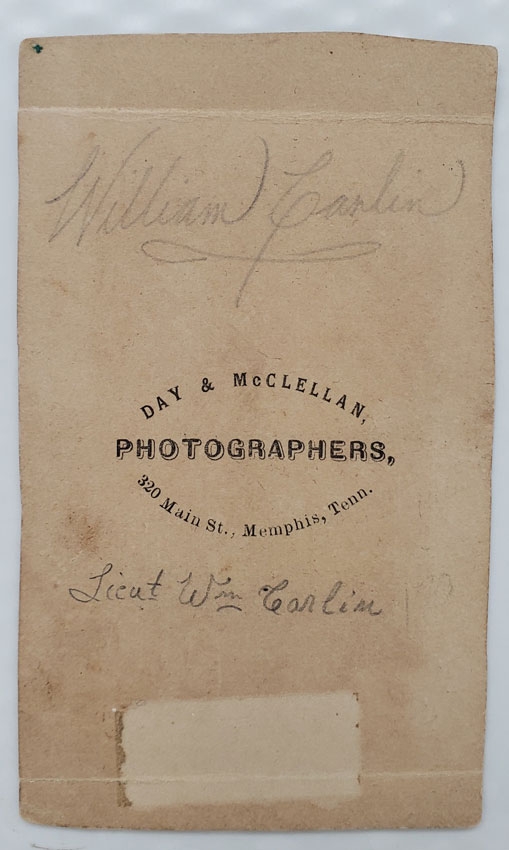 William Carlin
DAY & McCLELLAN,
PHOTOGRAPHERS,
320 Main St., Memphis, Tenn.
Lieut Wm Carlin